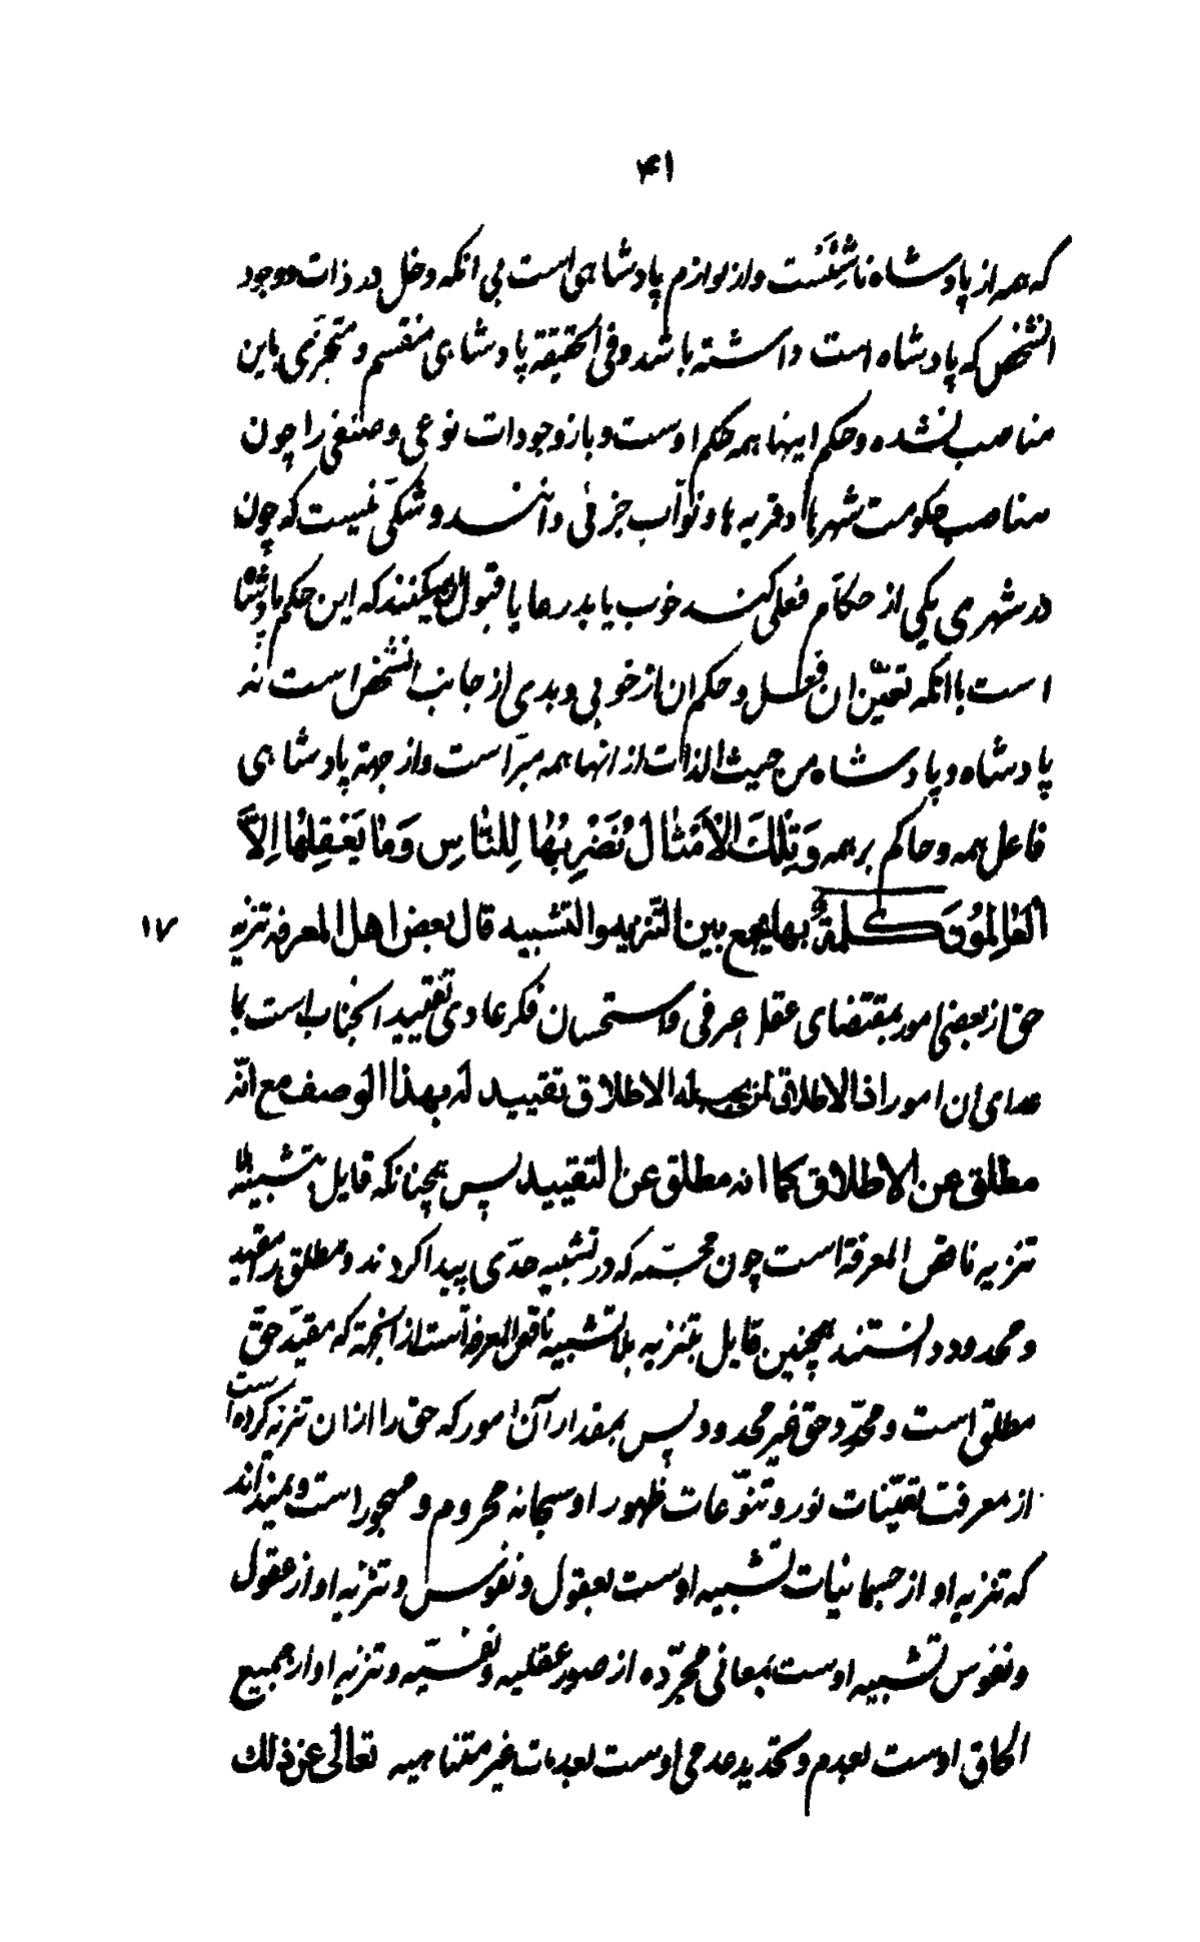 ۴۱
که همه از پادشاه ناشئست و از لوازم پادشاهی است بی انکه دخل در ذات و وجود
انشخص که پادشاه است داشته باشد و فی الحقیقة پادشاهی منقسم و متجزی باین
مناصب نشده و حکم اینها همه حکم اوست و باز وجودات نوعی و صنفی را چون
مناصب حکومت شهرها و قریه ها و نواب جزئی دانند و شکی نیست که چون
در شهری یکی از حکام فعلی کند خوب یا بد رعایا قبول میکنند که این حکم پادشاه
است با انکه تعین ان فعل و حکم ان از خوبی و بدی از جانب انشخص است نه
پادشاه و پادشاه من حیث الذات از انها همه مبراست و از جهة پادشاهی
فاعل همه و حاکم بر همه وَتِلْكَ الْاَمْثَالُ نَضْرِبُهَا لِلنَّاسِ وَمَا يَعْقِلُهَا اِلَّا
الْعَالِمُونَ كلمةٌ بها یجمع بین التنزیه والتشبیه قال بعض اهل المعرفه تنزیه
۱۷
حق از بعضی امور بمقتضای عقل عرفی و استحسان فکر عادی تقیید انجناب است بما
عدای ان امور اذ الاطلاق لمن یجب له الاطلاق تقیید له بهذا الوصف مع انّه
مطلق عن الاطلاق کما انه مطلق عن التقیید پس همچنانکه قایل بتشبیه بلا
تنزیه ناقص المعرفة است چون مجسّمه که در تشبیه حدّی پیدا کردند و مطلق را مقید
و محدود دانستند همچنین قایل بتنزیه بلا تشبیه ناقص المعرفة است از انجهة که مقیّد حق
مطلق است و محدّد حق غیر محدود پس بمقدار آن امور که حق را از ان تنزیه کرده است
از معرفت تعیّنات نور و تنوّعات ظهور او سبحانه محروم و مهجور است و نمیداند
که تنزیه او از جسمانیات تشبیه اوست بعقول و نفوس و تنزیه او از عقول
و نفوس تشبیه اوست بمعانی مجرّده از صور عقلیه و نفسیّه و تنزیه او از جمیع
الحاق اوست بعدم و تحدید عدمی اوست بعدمات غیر متناهیه تعالی عن ذلك